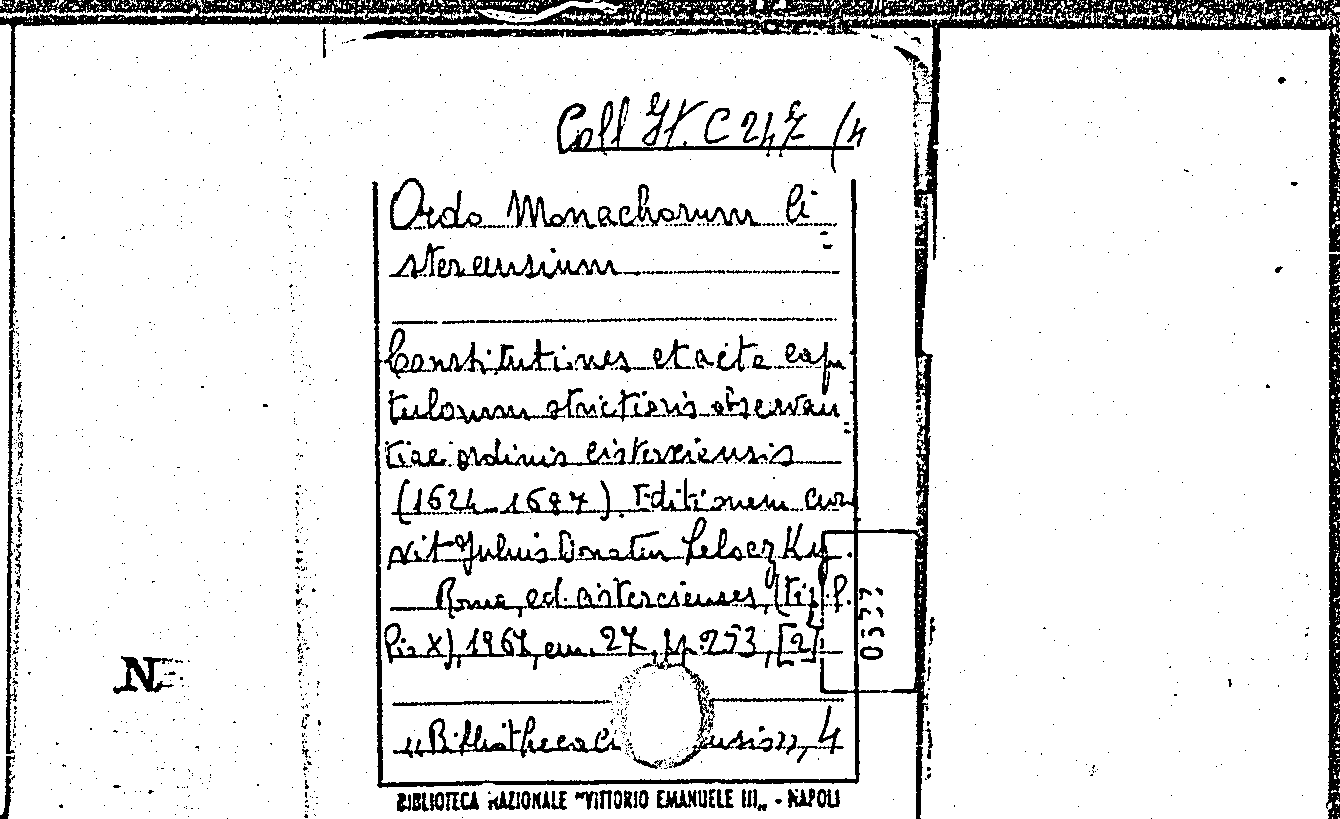 Coll It. C 247 (4
Ordo Monachorum Ci=
stercensium
Constitutiones et acta capi
tulorum strictioris observan=
tiae ordinis cisterciensis
(1624-1687). Editionem cur
xit Julius Donatus Lelocz Ky.
Roma, ed. cistercienses, (tip. P.
Pio X), 1967, cm. 27, pp. 253, [2]
0537
N
"Bibliotheca Ci ensis", 4
BIBLIOTECA NAZIONALE "VITTORIO EMANUELE III" - NAPOLI